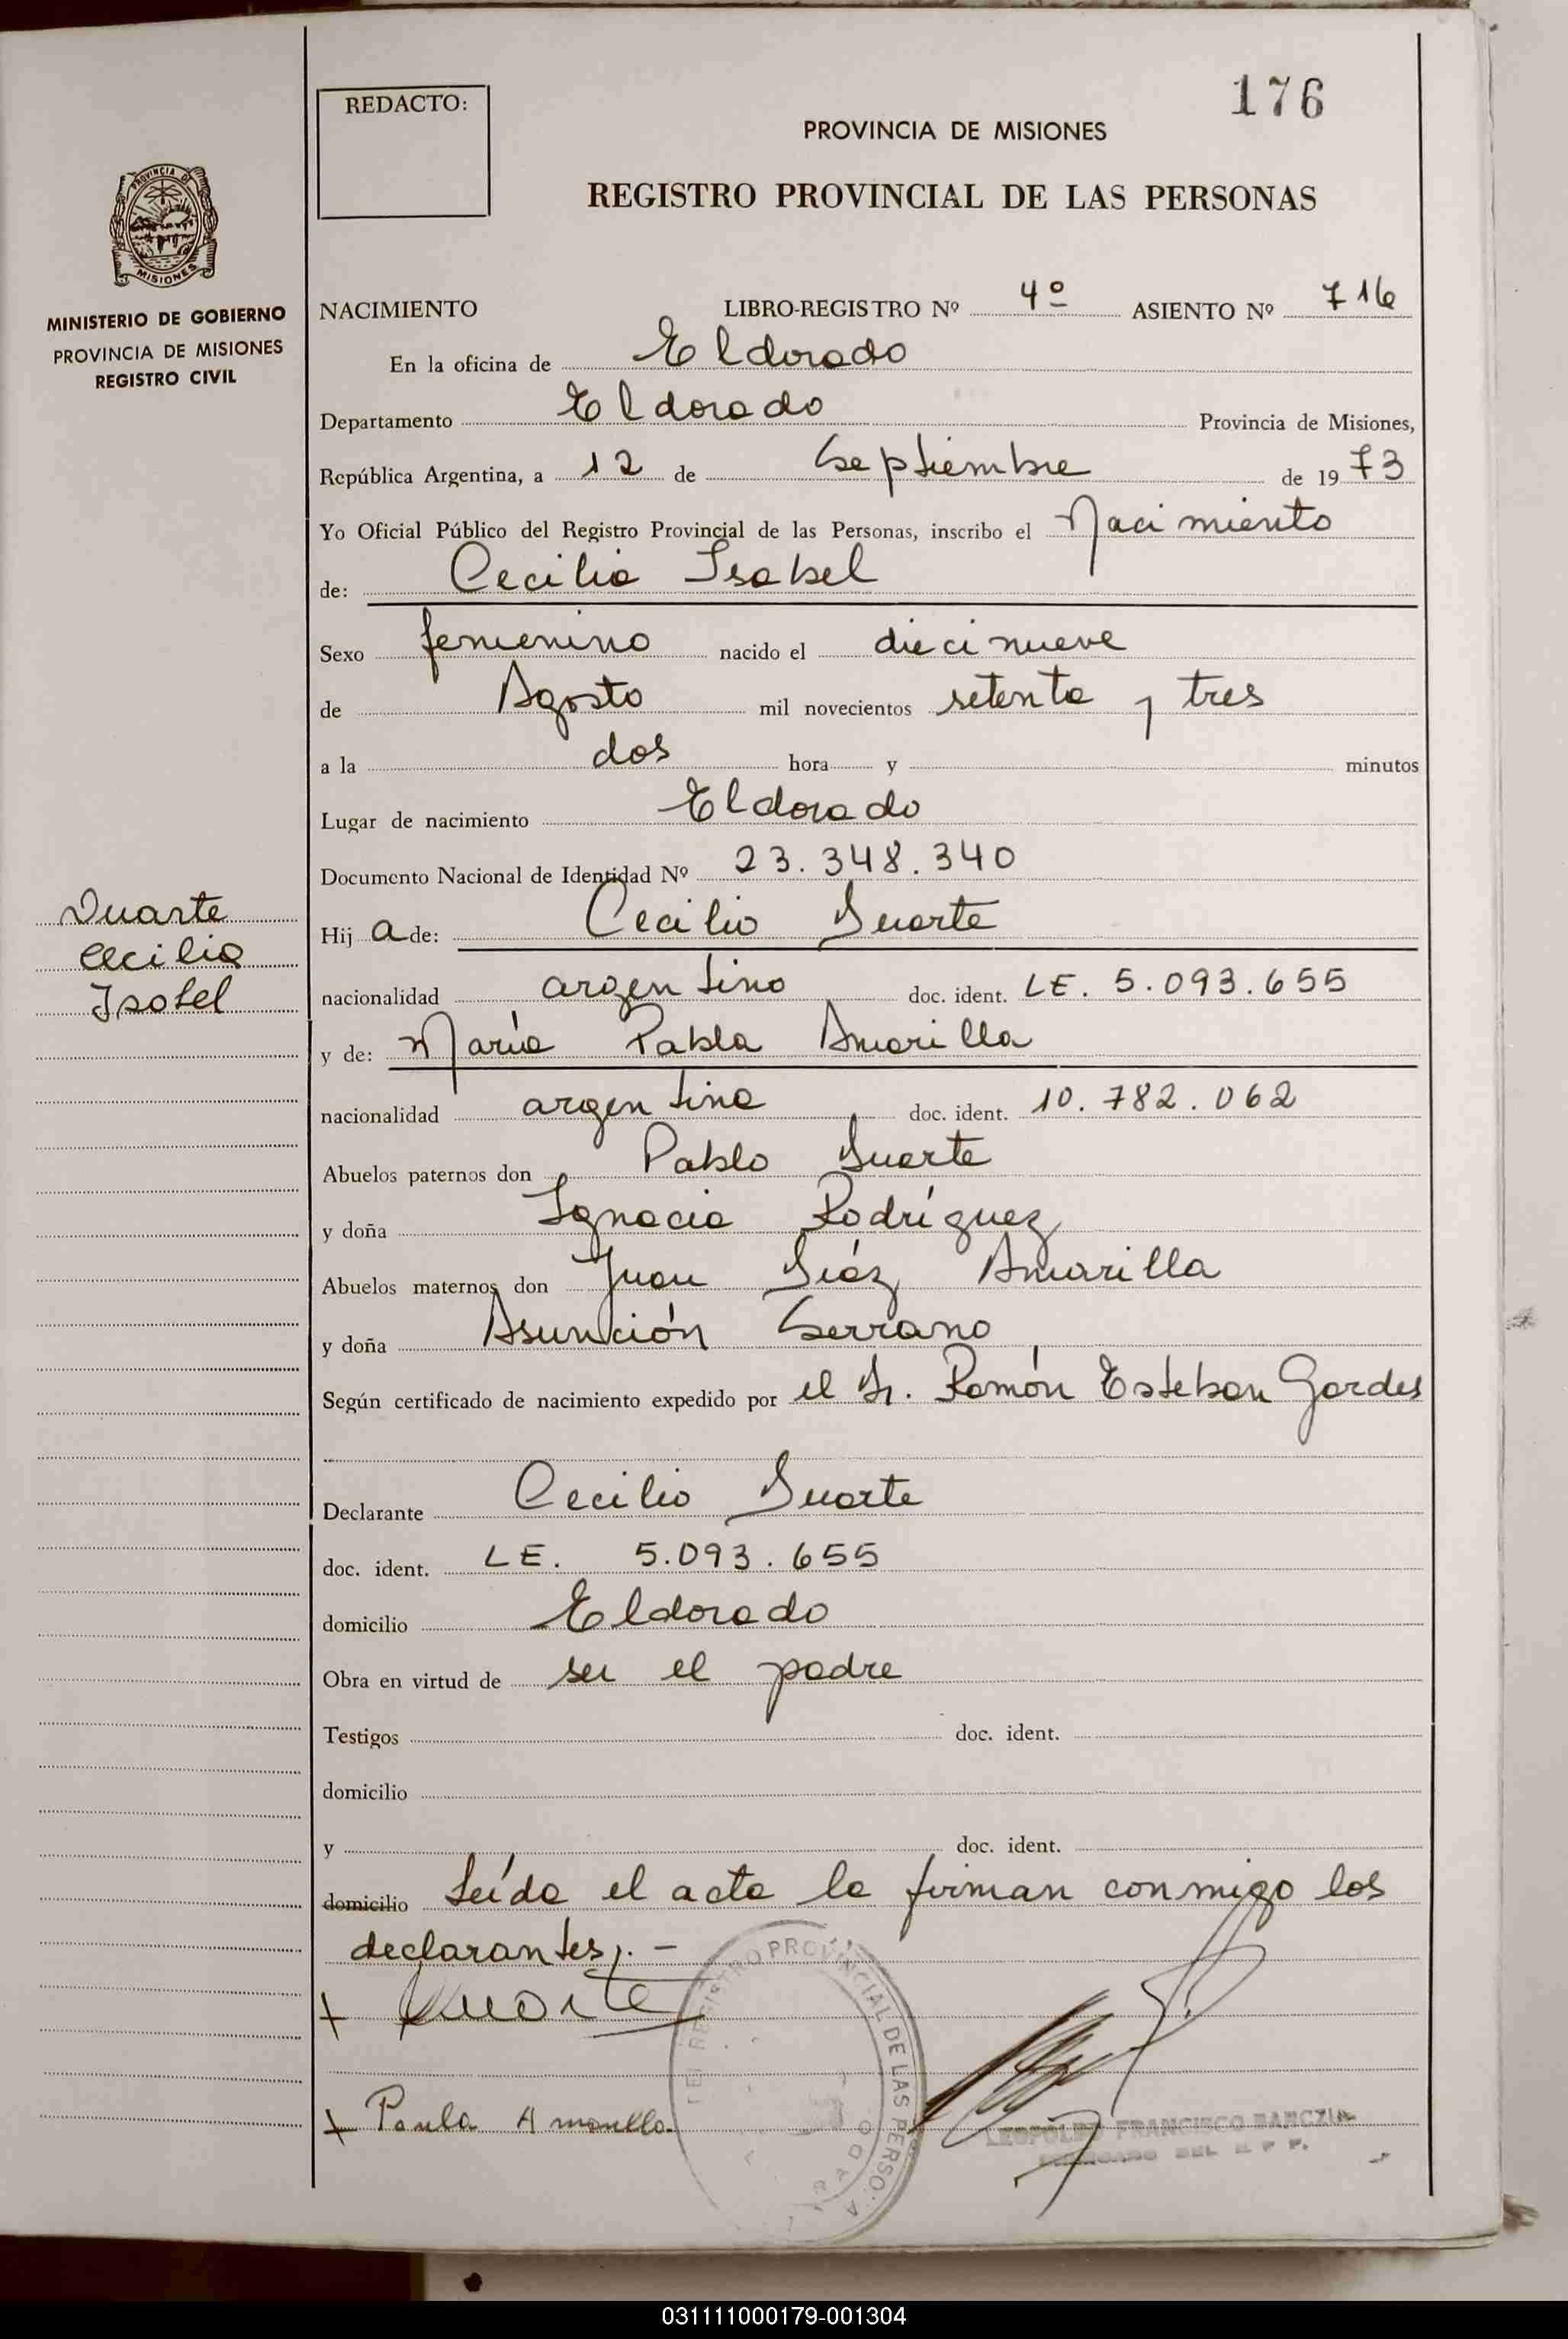 176
REDACTO:
PROVINCIA DE MISIONES
REGISTRO PROVINCIAL DE LAS PERSONAS
PROVINCIA DE
MISIONES
MINISTERIO DE GOBIERNO
PROVINCIA DE MISIONES
REGISTRO CIVIL
NACIMIENTO LIBRO-REGISTRO Nº 4º ASIENTO Nº 716
En la oficina de Eldorado
Departamento Eldorado Provincia de Misiones,
República Argentina, a 12 de Septiembre de 1973
Yo Oficial Público del Registro Provincial de las Personas, inscribo el Nacimiento
de: Cecilia Isabel
Sexo femenino nacido el diecinueve
de Agosto mil novecientos setenta y tres
a la dos hora y minutos
Lugar de nacimiento Eldorado
Documento Nacional de Identidad Nº 23.348.340
Duarte
Cecilia
Isabel
Hij a de: Cecilio Duarte
nacionalidad argentino doc. ident. LE. 5.093.655
y de: María Pabla Amarilla
nacionalidad argentina doc. ident. 10.782.062
Abuelos paternos don Pablo Duarte
y doña Ignacia Rodríguez
Abuelos maternos don Juan Diáz Amarilla
y doña Asunción Serrano
Según certificado de nacimiento expedido por el Dr. Ramón Esteban Gardes
Declarante Cecilio Duarte
doc. ident. LE. 5.093.655
domicilio Eldorado
Obra en virtud de ser el padre
Testigos doc. ident.
domicilio
y doc. ident.
domicilio Leída el acta la firman conmigo los
declarantes.-
+ Duarte
+ Paula Amarilla
REGISTRO PROVINCIAL DE LAS PERSO
LEOPOLDO FRANCISCO
031111000179-001304